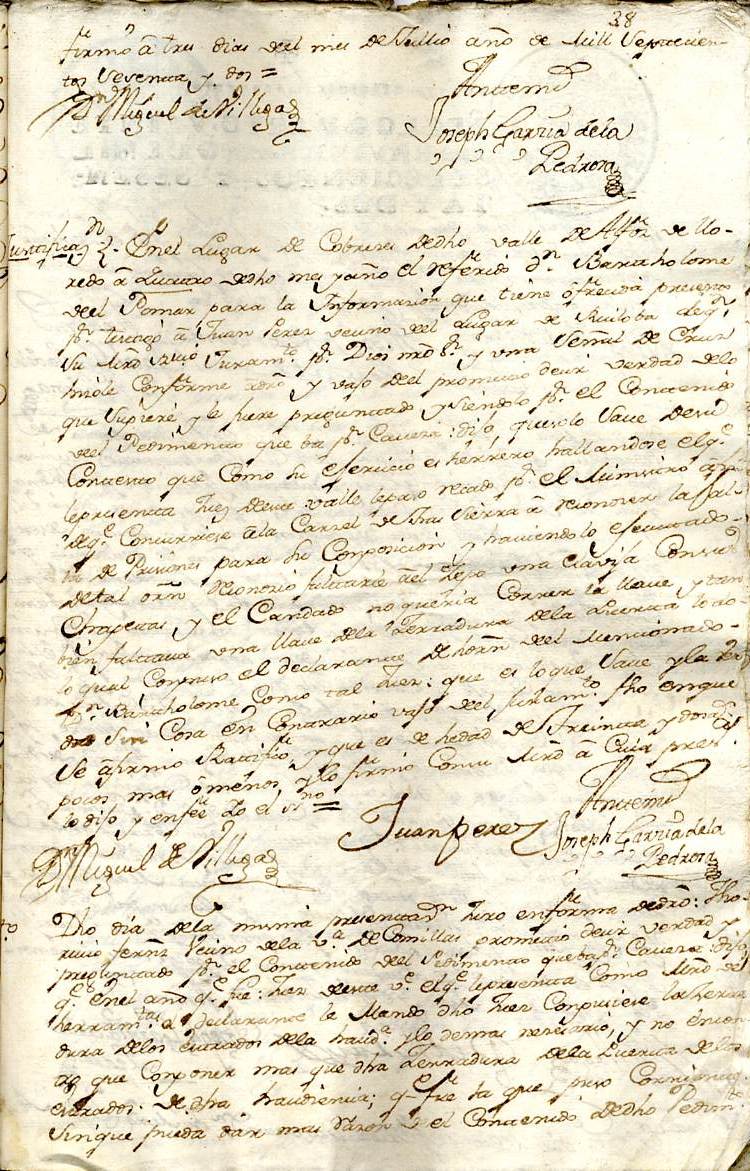 38
firmo â tres dias del mes de Jullio año de Mill Septecien-
tos Sesenta y dos =
Dn Miguel de Villegas
Antemi
Joseph Garcia dela
Pedrosa
Justificaon
En el Lugar de Cobreces dedho valle de Alfoz de Llo-
redo â quatro dedho mes y año el referido Dn Bartholome
del Pomar para la Informazion que tiene ofrecida presento
pr testigo â Juan Perez vecino del Lugar de Ruiloba de qn
Su Mrd rezivio Juramto pr Dios nro Sr y una Señal de Cruz
hizole Conforme a dro y vajo del prometio decir verdad delo
que Supiere y le fuere preguntado y siendolo pr el Contenido
del Pedimento que ba pr Cavera: dijo que solo save deeste
Contesto que Como su ejercicio es herrero hallandose el qe
lepresenta Juez deeste valle lepaso recado pr el Ministro
de qe Concurriese ala Carzel de tras Sierra â reconozer la fal-
ta de Prisiones para su Composicion y haviendolo ejecutado
de tal orn reconozio faltarle âel zepo una Clavija Con sus
Chapetas, y el Candado no queria Correr la llave y tam-
bien faltava una llave dela Zerradura dela Puerta todo
lo qual Compuso el declarante de horn del Mencionado
Dn Bartholome Como tal Juez: que es loque save y la ver-
dad sin Cosa en Contrario vajo del Juramto fho en que
se afirmo Ratifico, y que es de hedad de treinta y dos as
pocos mas ô menos y lo firmo Con su Mrd â Cuia presa
lo dijo y enfee Yo el ssno =
Juan perez
Antemi
Joseph Garcia dela
Pedrosa
Dn Miguel de Villegas
Dho dia dela misma presentaon Juro en forma de dro: Tho-
ribio fernz Vecino dela va de Comillas prometio decir verdad y
preguntado pr el Contenido del Pedimento que ba pr Cavera: dijo
qe En el año qe fue Juez deeste ve el qe lepresenta Como Mro de
herramtas a declarante le Mando dho Juez Compusiese la Zerra-
dura delos estrados dela haudia y lo demas nezesario, y no encon-
tro que Componer mas que dha Zerradura dela Puerta delos
estrados: de dha haudiencia; q fue la que puso Corriente
sin que pueda dar mas razon el Contenido de dho Pedimto